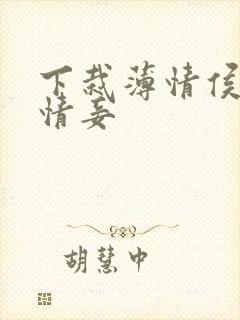 下裁薄情侯
情妾
胡慧中